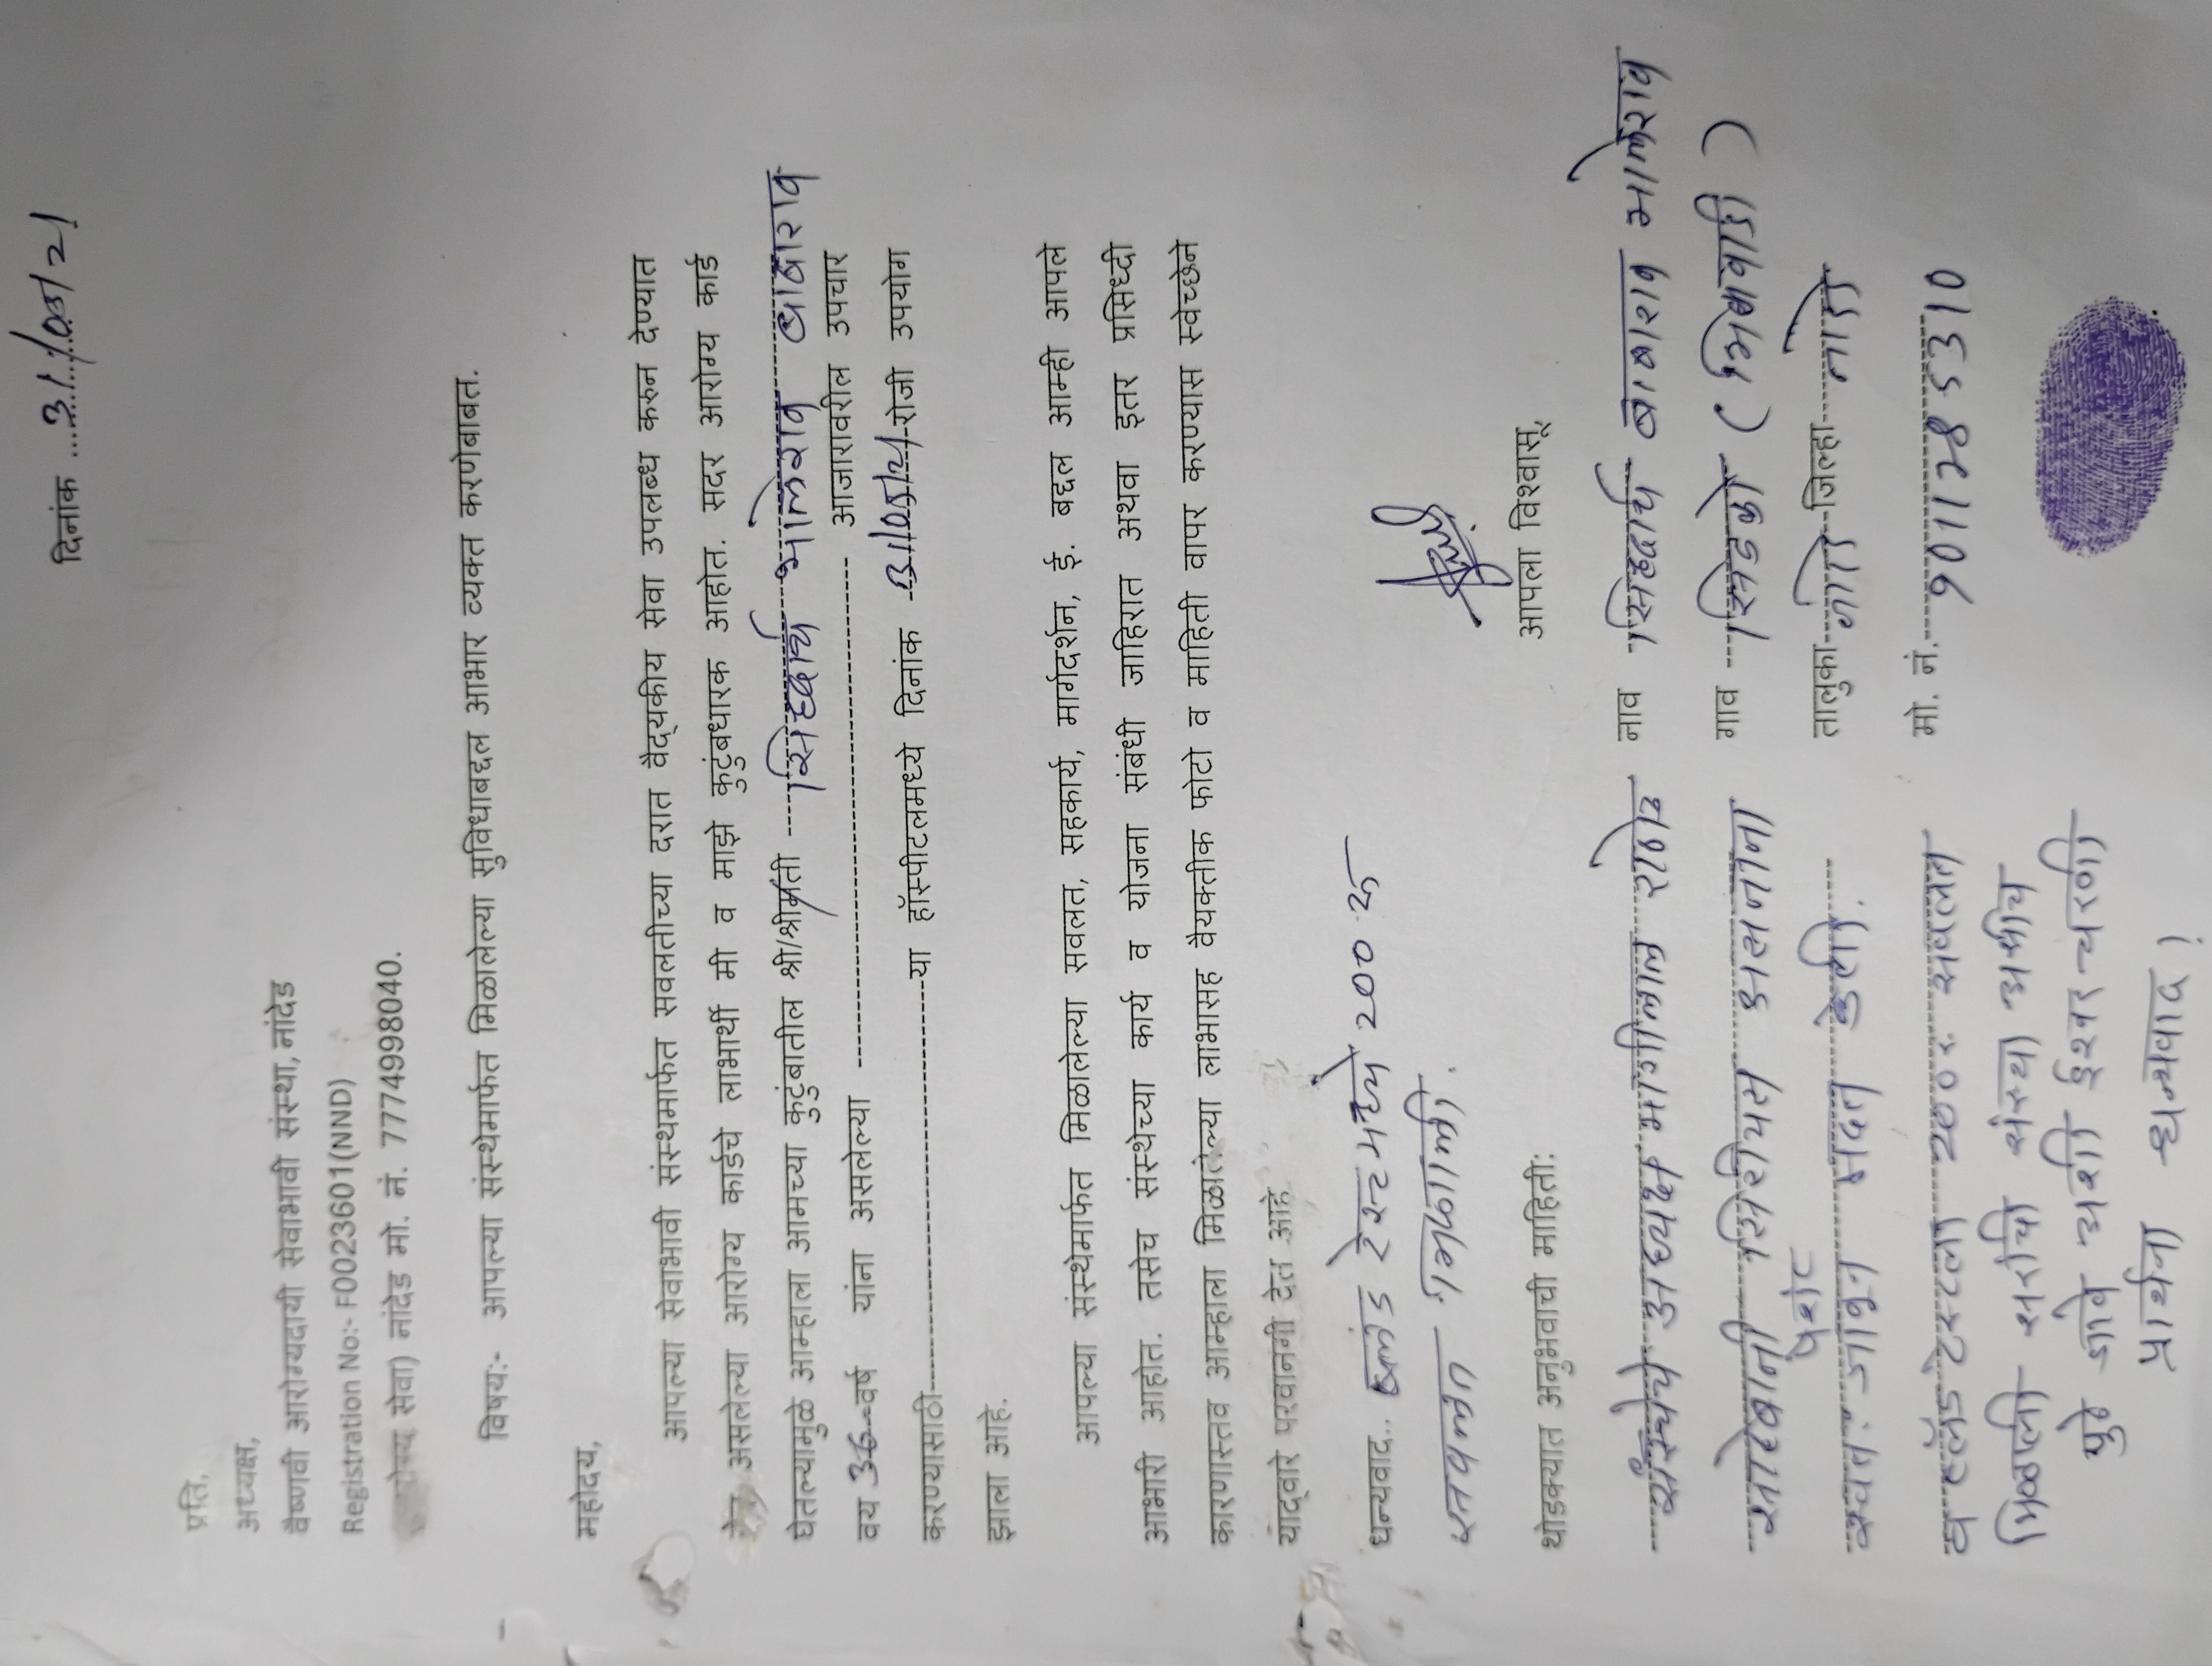 दिनांक ...31/05/21
प्रति,
अध्यक्ष,
वैष्णवी आरोग्यदायी सेवाभावी संस्था, नांदेड
Registration No:- F0023601(NND)
सेवा) नांदेड मो. नं. 7774998040.
विषय:- आपल्या संस्थेमार्फत मिळालेल्या सुविधाबद्दल आभार व्यक्त करणेबाबत.
महोदय,
आपल्या सेवाभावी संस्थमार्फत सवलतीच्या दरात वैद्यकीय सेवा उपलब्ध करुन देण्यात
असलेल्या आरोग्य कार्डचे लाभार्थी मी व माझे कुटुंबधारक आहोत. सदर आरोग्य कार्ड
घेतल्यामुळे आम्हाला आमच्या कुटुंबातील श्री/श्रीमती सिद्धार्थ भालेराव बाबाराव
वय 36 वर्ष यांना असलेल्या आजारावरील उपचार
करण्यासाठी या हॉस्पीटलमध्ये दिनांक 31/05/21 रोजी उपयोग
झाला आहे.
आपल्या संस्थेमार्फत मिळालेल्या सवलत, सहकार्य, मार्गदर्शन, ई. बद्दल आम्ही आपले
आभारी आहोत. तसेच संस्थेच्या कार्य व योजना संबंधी जाहिरात अथवा इतर प्रसिध्दी
कारणास्तव आम्हाला मिळालेल्या लाभासह वैयक्तीक फोटो व माहिती वापर करण्यास स्वेच्छेने
याद्वारे परवानगी देत आहे.
धन्यवाद.. ब्लड टेस्ट मध्ये 200 रु
सवलत मिळाली.
आपला विश्वासू,
थोडक्यात अनुभवाची माहिती:
संस्थेचे अध्यक्ष राठोड
नाव सिद्धार्थ बाबाराव भालेराव
गाव सिडको
तालुका नांदेड जिल्हा नांदेड
मदत केली.
मो. नं.
व ब्लड टेस्टला 200रु सवलत
मिळाली संस्था अशीच
पुढे जावे ईश्वर चरणी
प्रार्थना धन्यवाद !